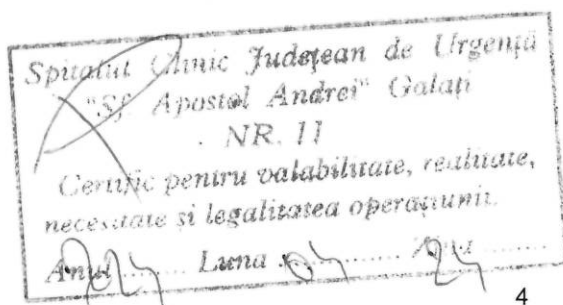 Spitalul Clinic Județean de Urgență
"Sf. Apostol Andrei" Galați
NR. 11
Certific pentru valabilitate, realitate,
necesitate si legalitatea operațiunii.
Anul ........ Luna ........ Ziua ........
4